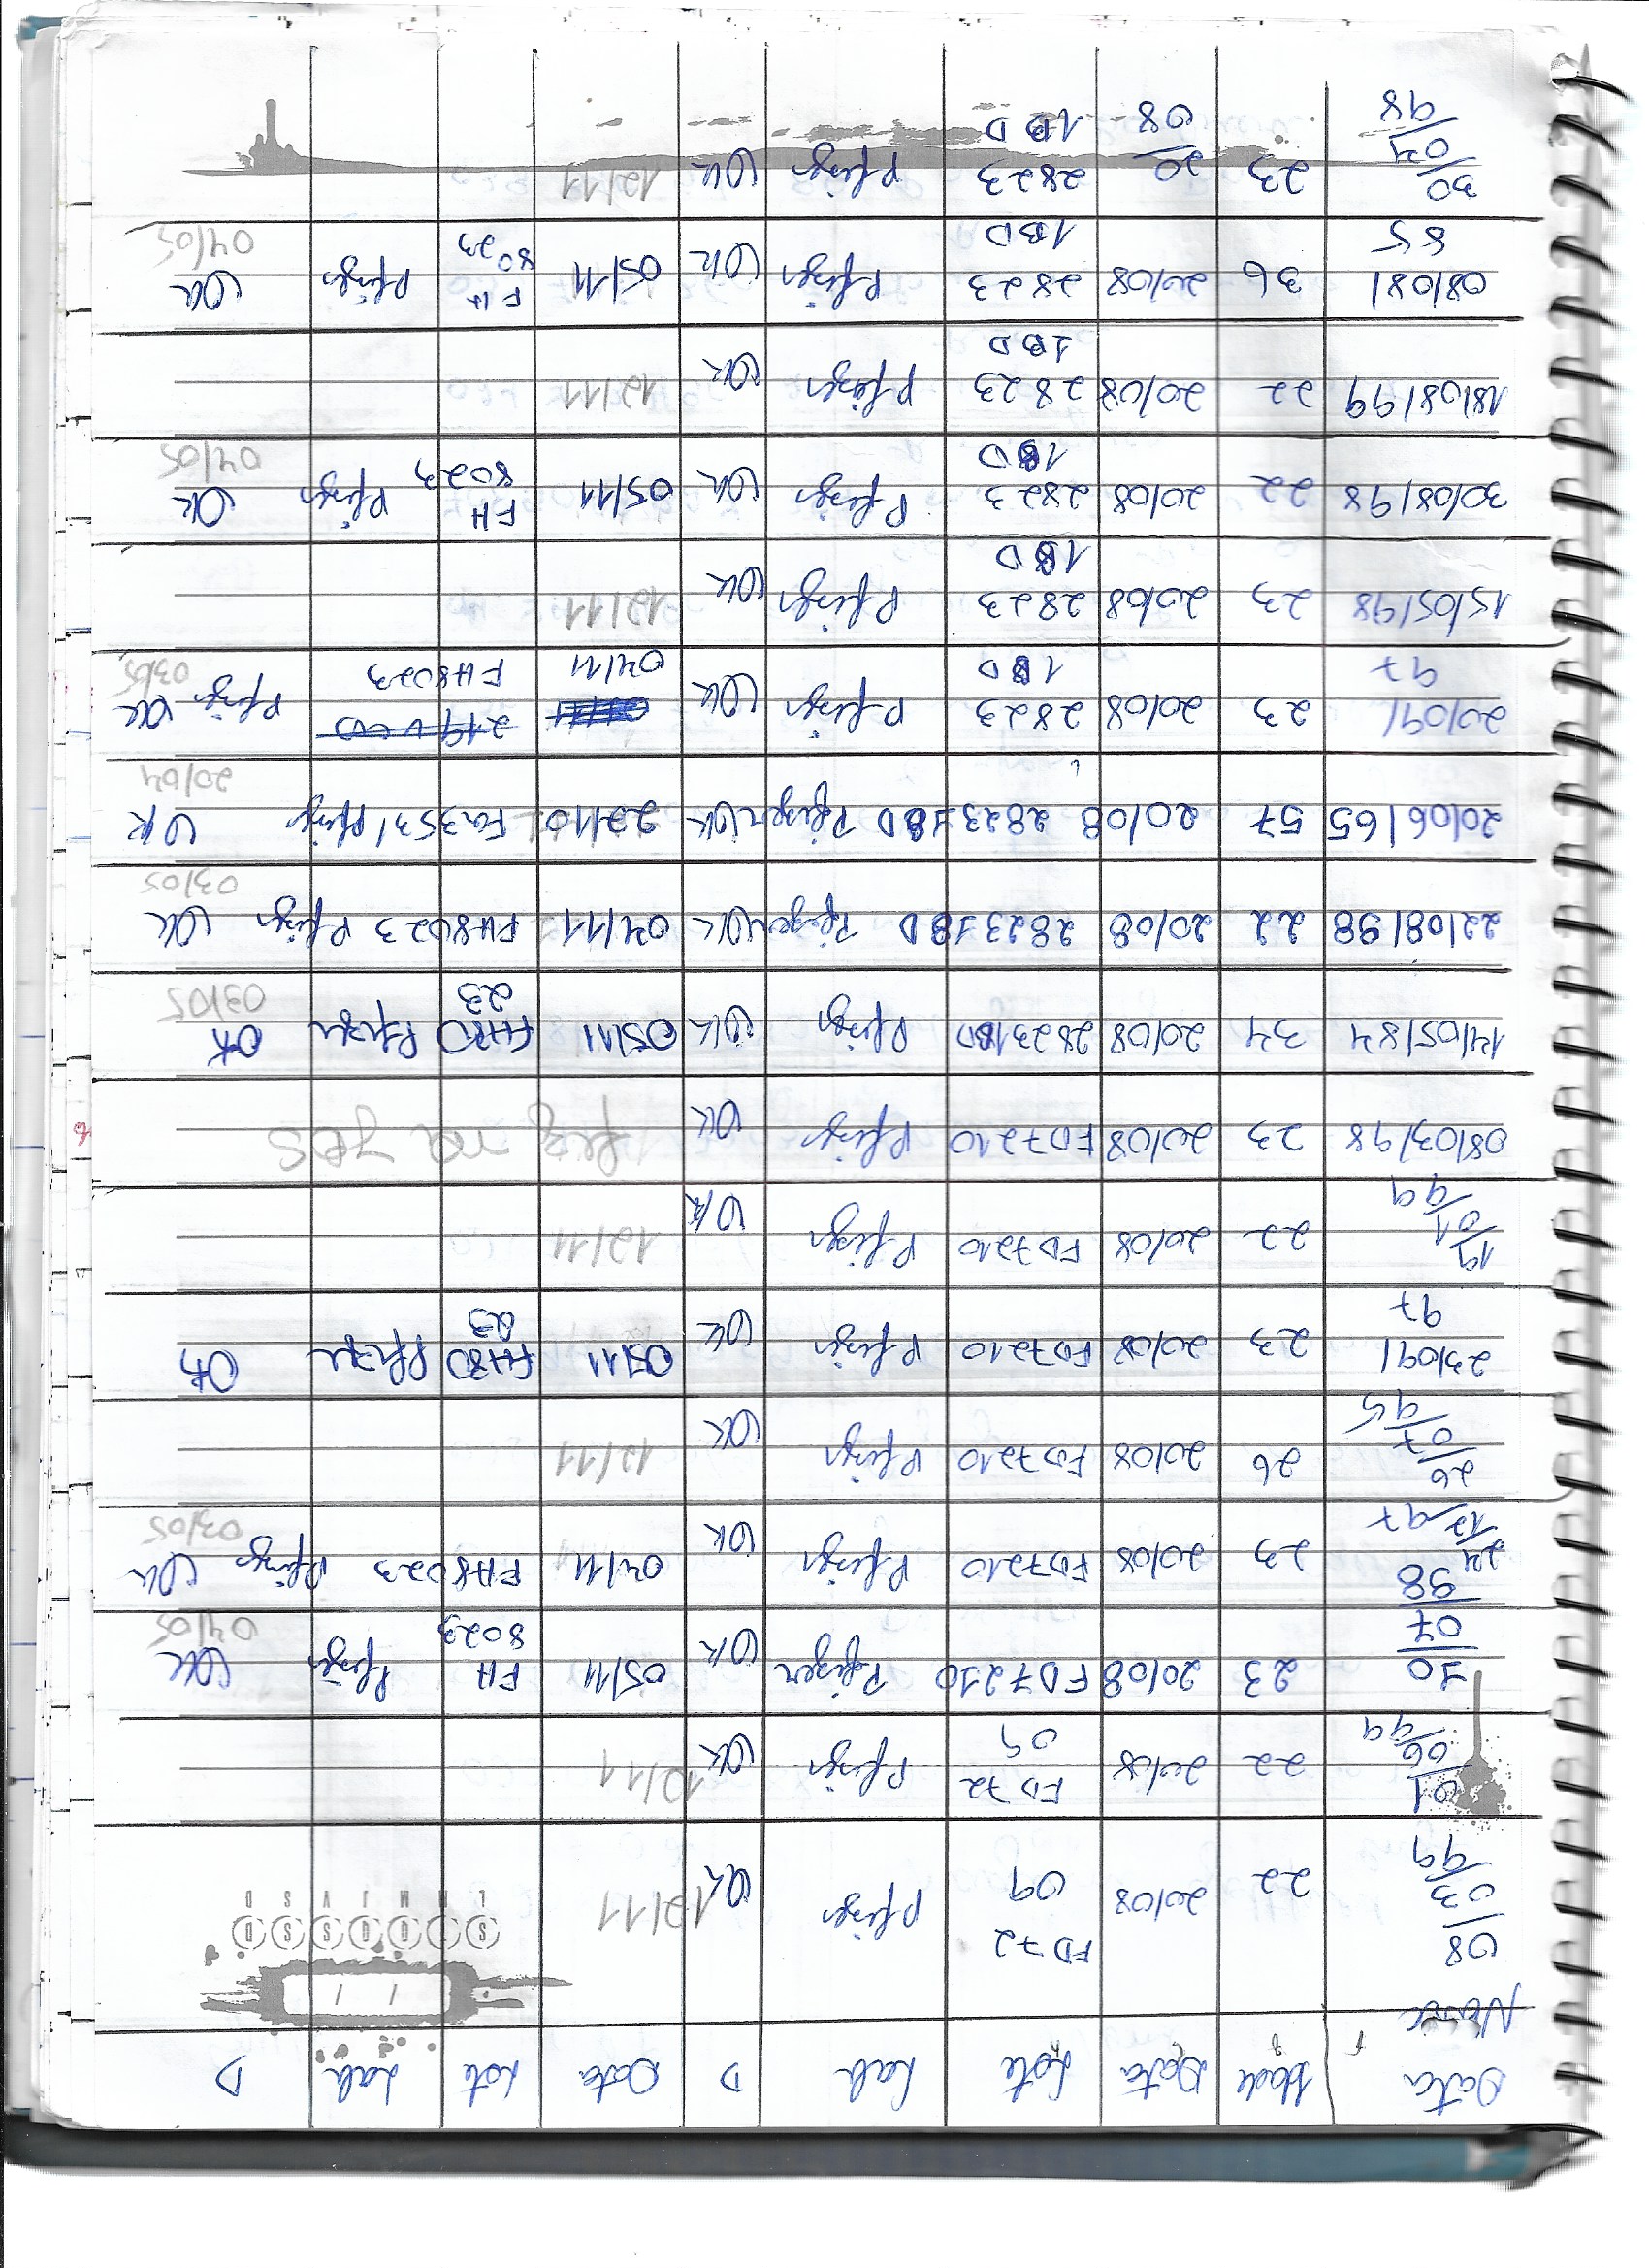 Data Nasc Idade Data Lote Lab D Data Lote Lab D
08/03/99 22 20/08 FD7209 Pfizer OK 12/11
01/06/99 22 20/08 FD7209 Pfizer OK 12/11
10/07/98 23 20/08 FD7210 Pfizer OK 05/11 FH8023 Pfizer OK 04/05
24/12/97 23 20/08 FD7210 Pfizer OK 04/11 FH8023 Pfizer OK 03/05
26/07/95 26 20/08 FD7210 Pfizer OK 12/11
23/09/97 23 20/08 FD7210 Pfizer OK 05/11 FH8023 Pfizer OK
19/01/99 22 20/08 FD7210 Pfizer OK 12/11
08/03/98 23 20/08 FD7210 Pfizer OK fez na JBS
14/05/84 34 20/08 28231BD Pfizer OK 05/11 FH8023 Pfizer OK 03/05
22/08/98 22 20/08 28231BD Pfizer OK 04/11 FH8023 Pfizer OK 03/05
20/06/65 57 20/08 28231BD Pfizer OK 22/10 Pfizer OK 20/04
20/09/97 23 20/08 28231BD Pfizer OK 04/11 FH8023 Pfizer OK 03/05
15/05/98 23 20/08 28231BD Pfizer OK 12/11
30/08/98 22 20/08 28231BD Pfizer OK 05/11 FH8023 Pfizer OK 04/05
18/08/99 22 20/08 28231BD Pfizer OK 12/11
08/08/85 36 20/08 28231BD Pfizer OK 05/11 FH8023 Pfizer OK 04/05
30/04/98 23 20/08 28231BD Pfizer OK 12/11